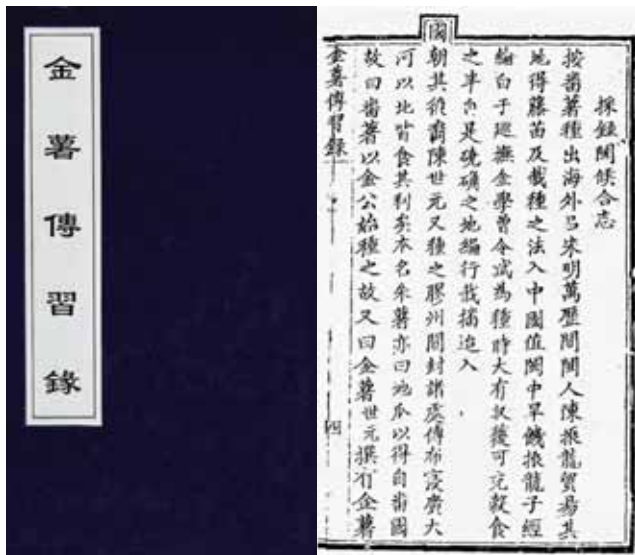 金薯傳習錄
採錄閩侯合志
按番薯種出海外呂宋明萬歷間閩人陳振龍貿易其
地得藤苗及栽種之法入中國值閩中旱饑振龍子經
綸白于巡撫金學曾令試為種時大有收穫可充穀食
之半自是磽确之地遍行栽插迨入
國朝其後裔陳世元又種之膠州開封諸處傳布寖廣大
河以北皆食其利矣本名朱薯亦曰地瓜以得自番國
故曰番薯以金公始種之故又曰金薯世元撰有金薯
金薯傳習錄 四